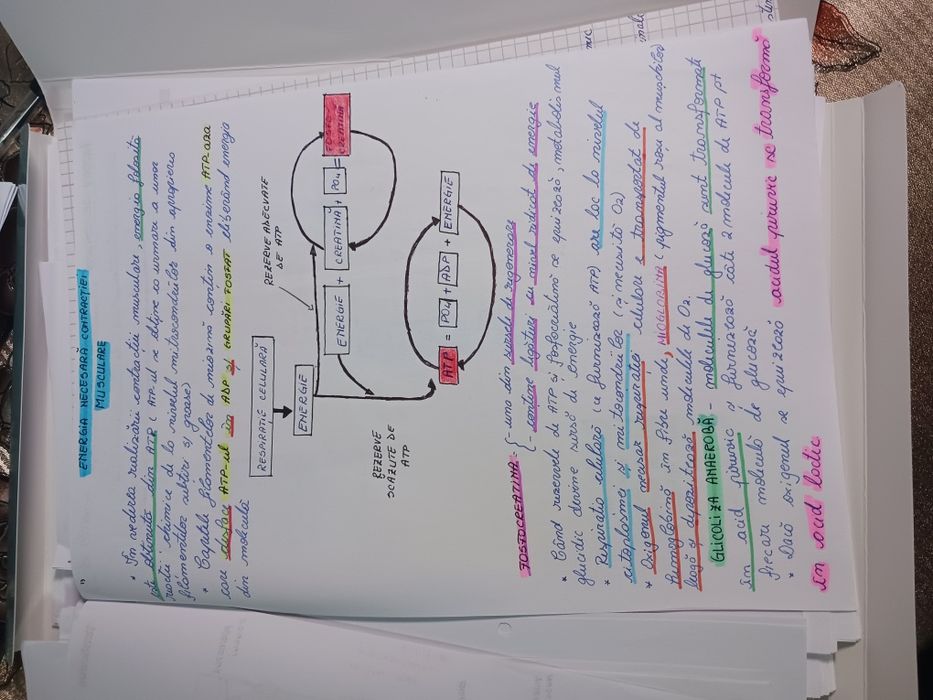 ENERGIA NECESARĂ CONTRACȚIEI
MUSCULARE
* În vederea realizării contracției musculare, energia folosită
este obținută din ATP ( ATP-ul se obține ca urmare a unor
reacții chimice de la nivelul mitocondriilor din apropierea
filamentelor subțiri și groase)
* Capetele filamentelor de miozină conțin o enzimă ATP-aza
care desface ATP-ul în ADP și GRUPĂRI FOSFAT eliberând energia
din moleculă
RESPIRAȚIE CELULARĂ
ENERGIE
REZERVE ADECVATE
DE ATP
ENERGIE + CREATINĂ + PO4 = FOSFO-
CREATINĂ
REZERVE
SCĂZUTE DE
ATP
ATP = PO4 + ADP + ENERGIE
FOSFOCREATINA: { una din sursele de regenerare
- conține legături cu nivel ridicat de energie
* Când rezervele de ATP și fosfocreatină se epuizează, metabolismul
glucidic devine sursă de energie
* Respirația celulară (ce furnizează ATP) are loc la nivelul
citoplasmei și mitocondriilor (și necesită O2)
* Oxigenul necesar respirației celulare e transportat de
hemoglobină în fibre unde, MIOGLOBINA ( pigmentul roșu al mușchilor)
leagă și depozitează molecule de O2.
GLICOLIZA ANAEROBĂ - moleculele de glucoză sunt transformate
în acid piruvic și furnizează câte 2 molecule de ATP pt
fiecare moleculă de glucoză
* Dacă oxigenul se epuizează acidul piruvic se transformă
în acid lactic